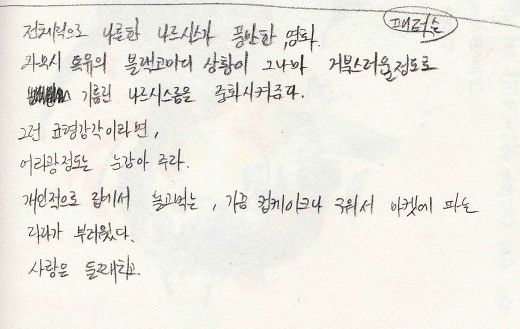 패터슨
전체적으로 나른한 나르시스가 풍만한 영화.
자무시 특유의 블랙코미디 상황이 그나마 거부스러울정도로
기름린 나르시스름을 중화시켜준다.
그런 균형감각이라면,
어리광정도는 눈감아 주라.
개인적으로 집에서 놀고먹는, 가끔 컵케이크나 구워서 마켓에 파는
다다가 부러웠다.
사랑은 둘째치고.